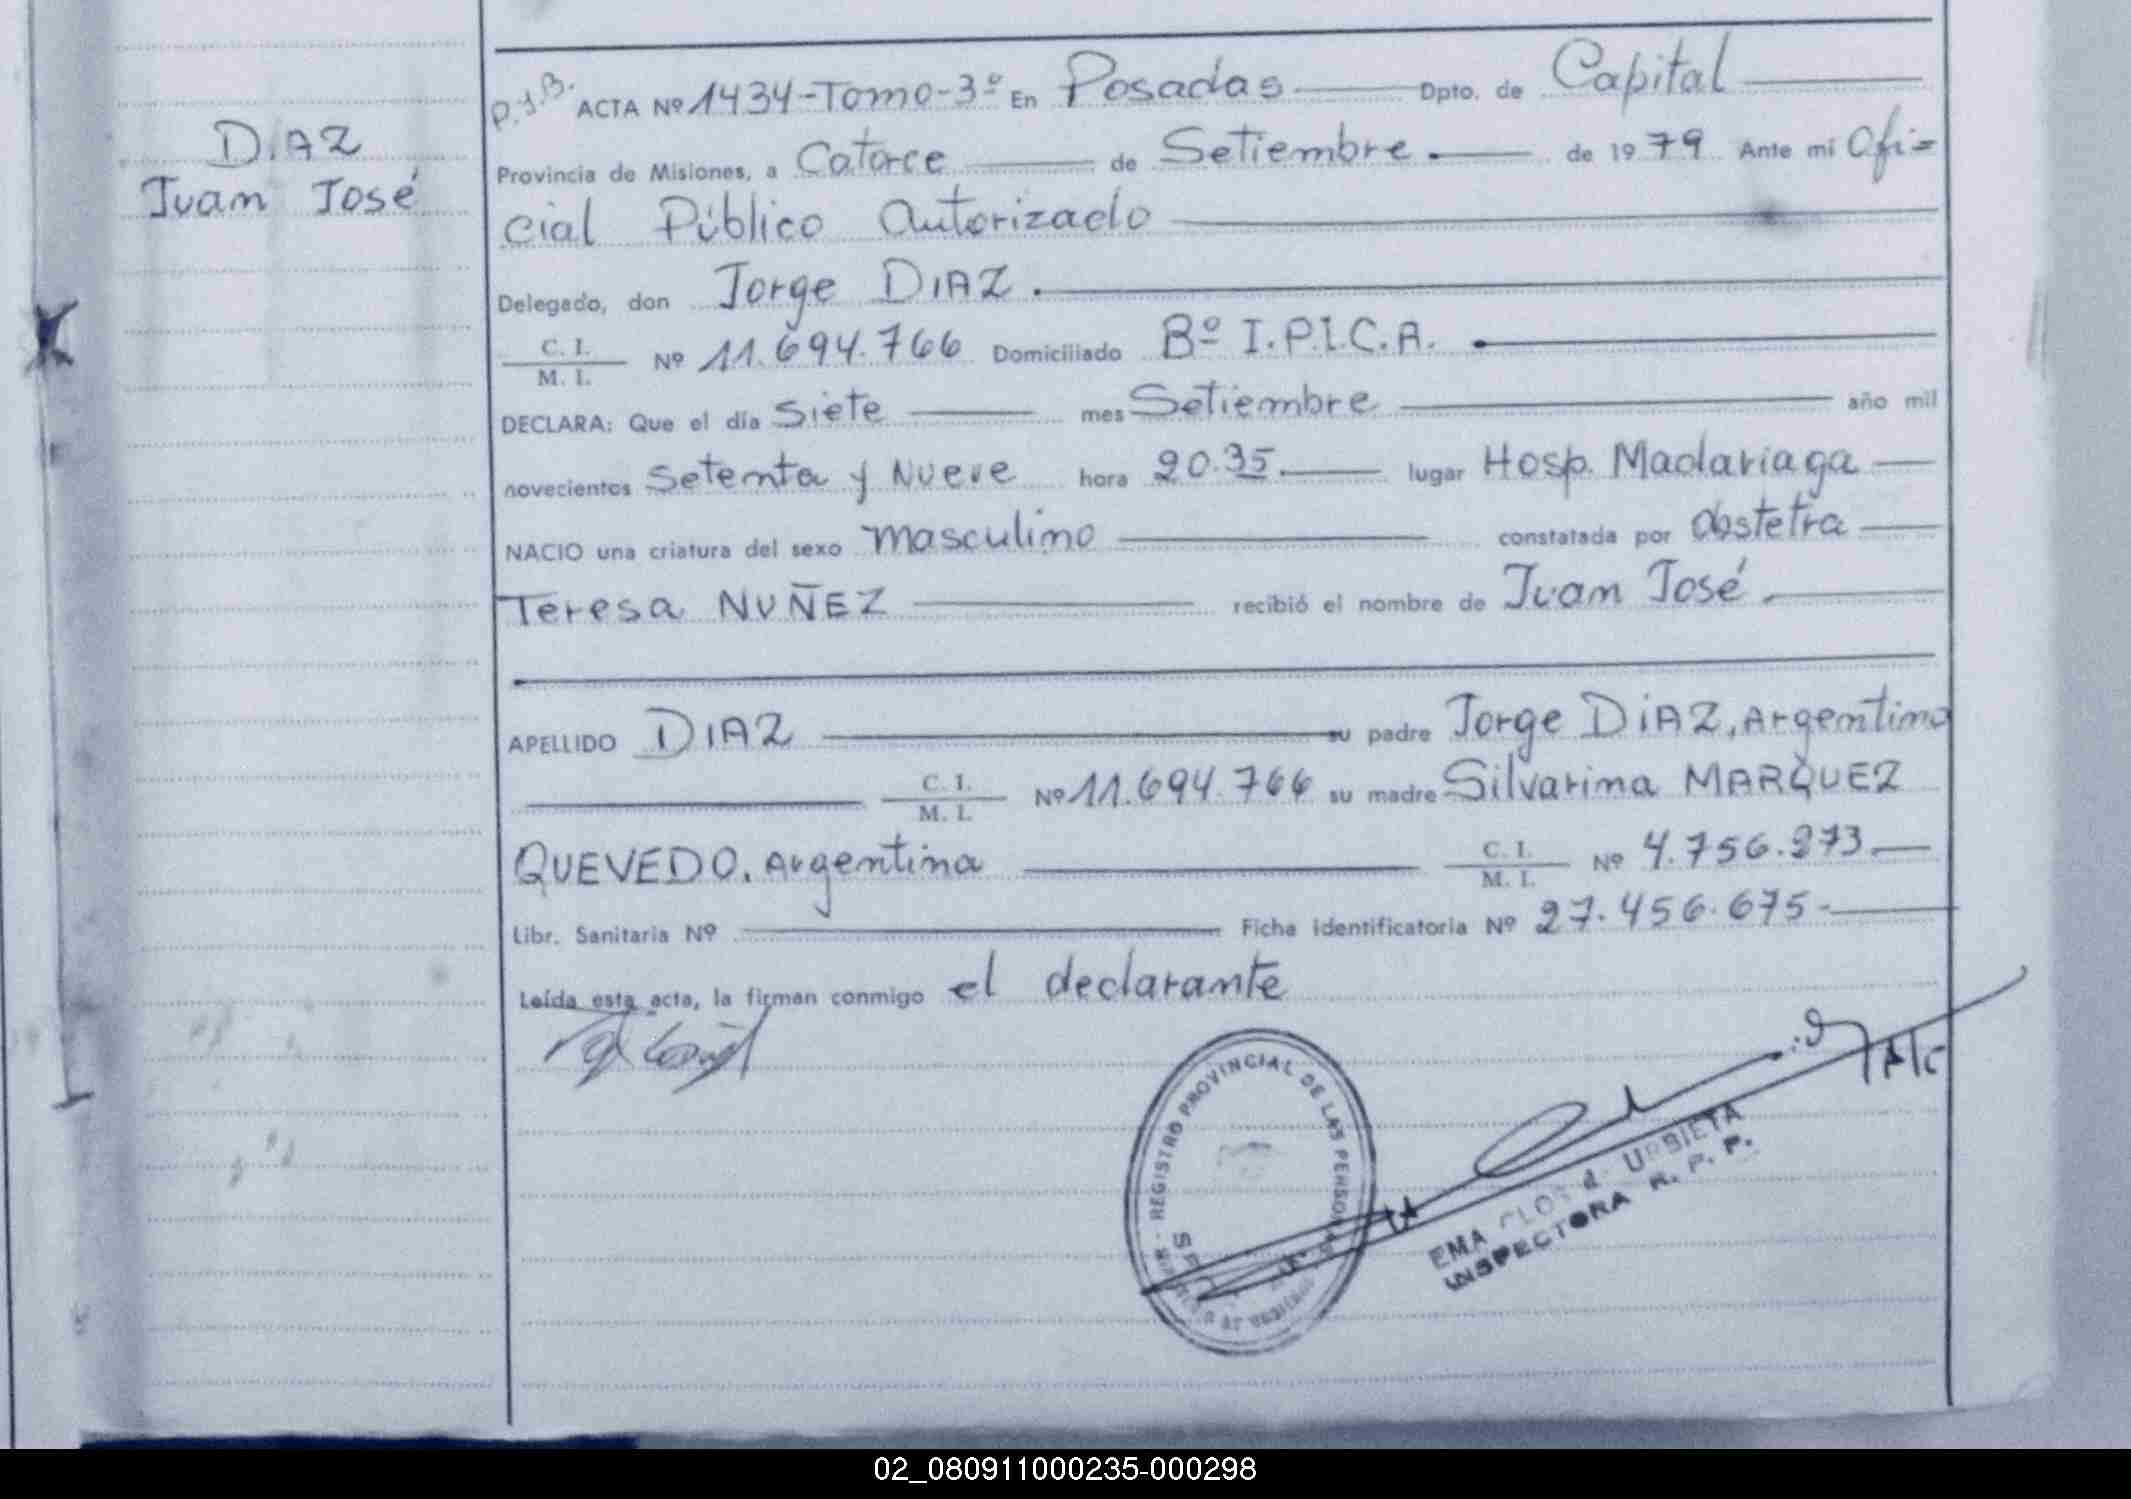 DIAZ
Juan José
P.J.B. ACTA Nº 1434-Tomo-3º En Posadas Dpto. de Capital
Provincia de Misiones, a Catorce de Setiembre de 1979 Ante mi Ofi=
cial Público Autorizado
Delegado, don Jorge DIAZ.
C. I. / M. I. Nº 11.694.766 Domiciliado Bº I.P.I.C.A.
DECLARA: Que el día Siete mes Setiembre año mil
novecientos Setenta y Nueve hora 20.35. lugar Hosp. Madariaga
NACIO una criatura del sexo masculino constatada por Obstetra
Teresa NUÑEZ recibió el nombre de Juan José.
APELLIDO DIAZ su padre Jorge DIAZ, Argentino
C. I. / M. I. Nº 11.694.766 su madre Silvarina MARQUEZ
QUEVEDO. Argentina C. I. / M. I. Nº 4.756.273
Libr. Sanitaria Nº Ficha identificatoria Nº 27.456.675-
Leída esta acta, la firman conmigo el declarante
REGISTRO PROVINCIAL DE LAS PERSONAS
EMA URBIETA
INSPECTORA R. P. P.
02_080911000235-000298